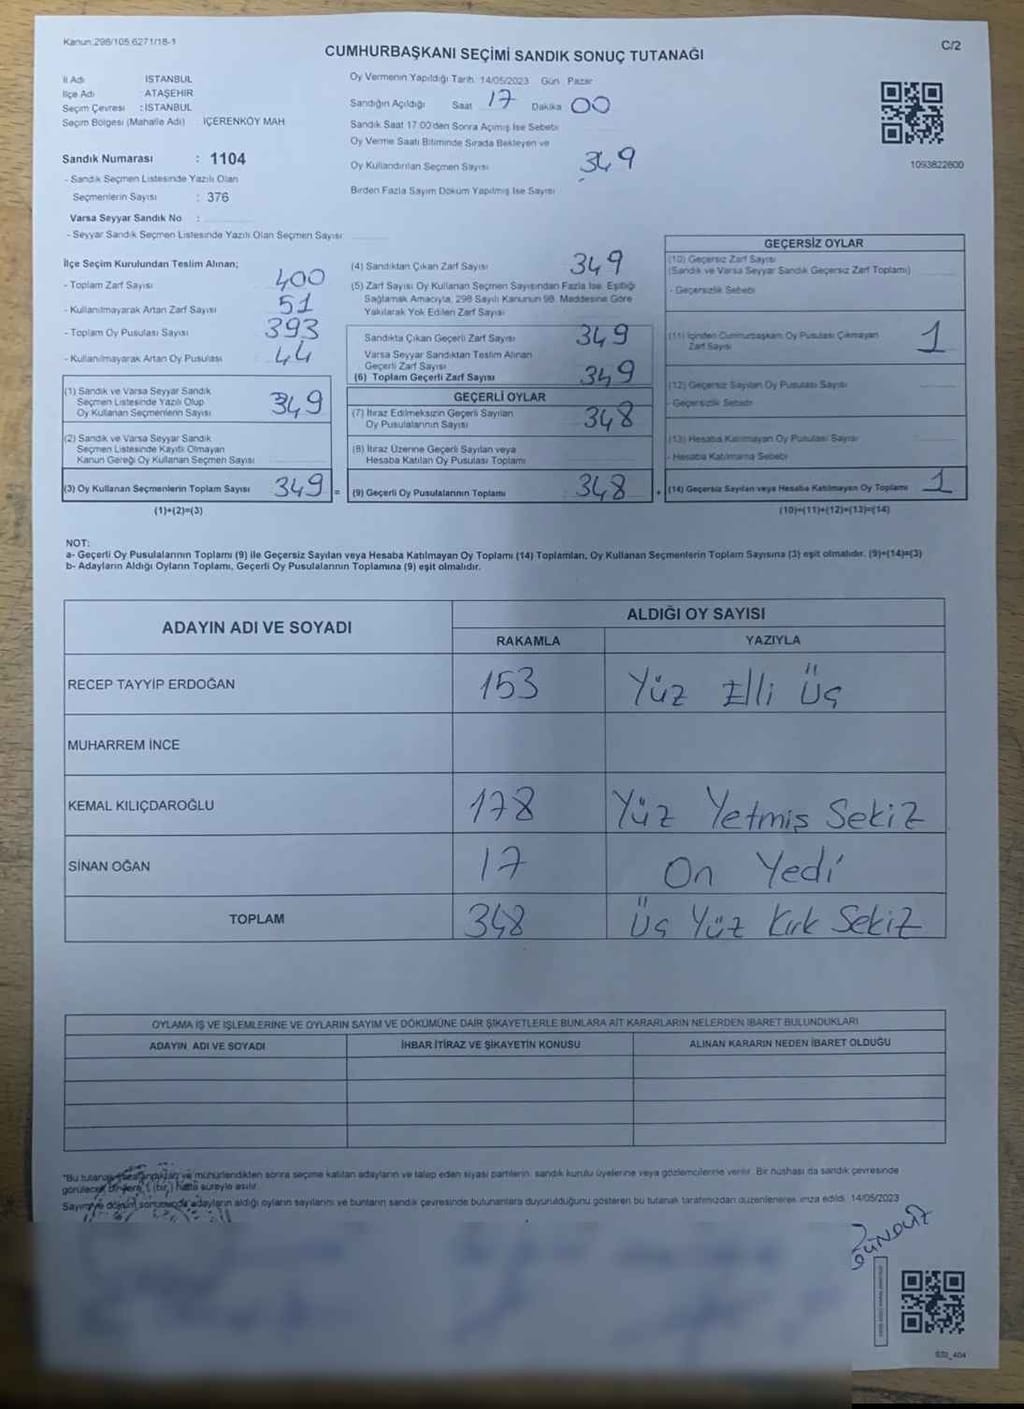 Kanun:298/105 6271/18-1
C/2
CUMHURBAŞKANI SEÇİMİ SANDIK SONUÇ TUTANAĞI
İl Adı İSTANBUL
İlçe Adı : ATAŞEHİR
Seçim Çevresi : İSTANBUL
Seçim Bölgesi (Mahalle Adı) İÇERENKÖY MAH
Sandık Numarası : 1104
- Sandık Seçmen Listesinde Yazılı Olan
Seçmenlerin Sayısı : 376
Varsa Seyyar Sandık No :
- Seyyar Sandık Seçmen Listesinde Yazılı Olan Seçmen Sayısı
Oy Vermenin Yapıldığı Tarih 14/05/2023 Gün Pazar
Sandığın Açıldığı Saat 17 Dakika 00
Sandık Saat 17:00'den Sonra Açımış İse Sebebi
Oy Verme Saati Bitiminde Sırada Bekleyen ve
Oy Kullandırılan Seçmen Sayısı 349
Birden Fazla Sayım Döküm Yapılmış İse Sayısı
1093822600
İlçe Seçim Kurulundan Teslim Alınan;
- Toplam Zarf Sayısı 400
- Kullanılmayarak Artan Zarf Sayısı 51
- Toplam Oy Pusulası Sayısı 393
- Kullanılmayarak Artan Oy Pusulası 44
(1) Sandık ve Varsa Seyyar Sandık
Seçmen Listesinde Yazılı Olup
Oy Kullanan Seçmenlerin Sayısı 349
(2) Sandık ve Varsa Seyyar Sandık
Seçmen Listesinde Kayıtlı Olmayan
Kanun Gereği Oy Kullanan Seçmen Sayısı
(3) Oy Kullanan Seçmenlerin Toplam Sayısı 349 =
(1)+(2)=(3)
(4) Sandıktan Çıkan Zarf Sayısı 349
(5) Zarf Sayısı Oy Kullanan Seçmen Sayısından Fazla İse Eşitliği
Sağlamak Amacıyla, 298 Sayılı Kanunun 98. Maddesine Göre
Yakılarak Yok Edilen Zarf Sayısı
Sandıkta Çıkan Geçerli Zarf Sayısı 349
Varsa Seyyar Sandıktan Teslim Alınan
Geçerli Zarf Sayısı
(6) Toplam Geçerli Zarf Sayısı 349
GEÇERLİ OYLAR
(7) İtiraz Edilmeksizin Geçerli Sayılan
Oy Pusulalarının Sayısı 348
(8) İtiraz Üzerine Geçerli Sayılan veya
Hesaba Katılan Oy Pusulası Toplamı
(9) Geçerli Oy Pusulalarının Toplamı 348 +
GEÇERSİZ OYLAR
(10) Geçersiz Zarf Sayısı
(Sandık ve Varsa Seyyar Sandık Geçersiz Zarf Toplamı)
- Geçersizlik Sebebi
(11) İçinden Cumhurbaşkanı Oy Pusulası Çıkmayan
Zarf Sayısı 1
(12) Geçersiz Sayılan Oy Pusulası Sayısı
- Geçersizlik Sebebi
(13) Hesaba Katılmayan Oy Pusulası Sayısı
- Hesaba Katılmama Sebebi
(14) Geçersiz Sayılan veya Hesaba Katılmayan Oy Toplamı 1
(10)+(11)+(12)+(13)=(14)
NOT:
a- Geçerli Oy Pusulalarının Toplamı (9) ile Geçersiz Sayılan veya Hesaba Katılmayan Oy Toplamı (14) Toplamları, Oy Kullanan Seçmenlerin Toplam Sayısına (3) eşit olmalıdır. (9)+(14)=(3)
b- Adayların Aldığı Oyların Toplamı, Geçerli Oy Pusulalarının Toplamına (9) eşit olmalıdır.
ADAYIN ADI VE SOYADI
ALDIĞI OY SAYISI
RAKAMLA YAZIYLA
RECEP TAYYİP ERDOĞAN 153 Yüz Elli Üç
MUHARREM İNCE
KEMAL KILIÇDAROĞLU 178 Yüz Yetmiş Sekiz
SİNAN OĞAN 17 On Yedi
TOPLAM 348 Üç Yüz Kırk Sekiz
OYLAMA İŞ VE İŞLEMLERİNE VE OYLARIN SAYIM VE DÖKÜMÜNE DAİR ŞİKAYETLERLE BUNLARA AİT KARARLARIN NELERDEN İBARET BULUNDUKLARI
ADAYIN ADI VE SOYADI İHBAR İTİRAZ VE ŞİKAYETİN KONUSU ALINAN KARARIN NEDEN İBARET OLDUĞU
"Bu tutanağın ve mühürlendikten sonra seçime katılan adayların ve talep eden siyasi partilerin sandık kurulu üyelerine veya gözlemcilerine verilir. Bir nüshası da sandık çevresinde
görülecek bir yere 1 (bir) hafta süreyle asılır.
Sayım ve döküm sonucunda adayların aldığı oyların sayılarını ve bunların sandık çevresinde bulunanlara duyurulduğunu gösteren bu tutanak tarafımızdan düzenlenerek imza edildi. 14/05/2023
GÜNDÜZ